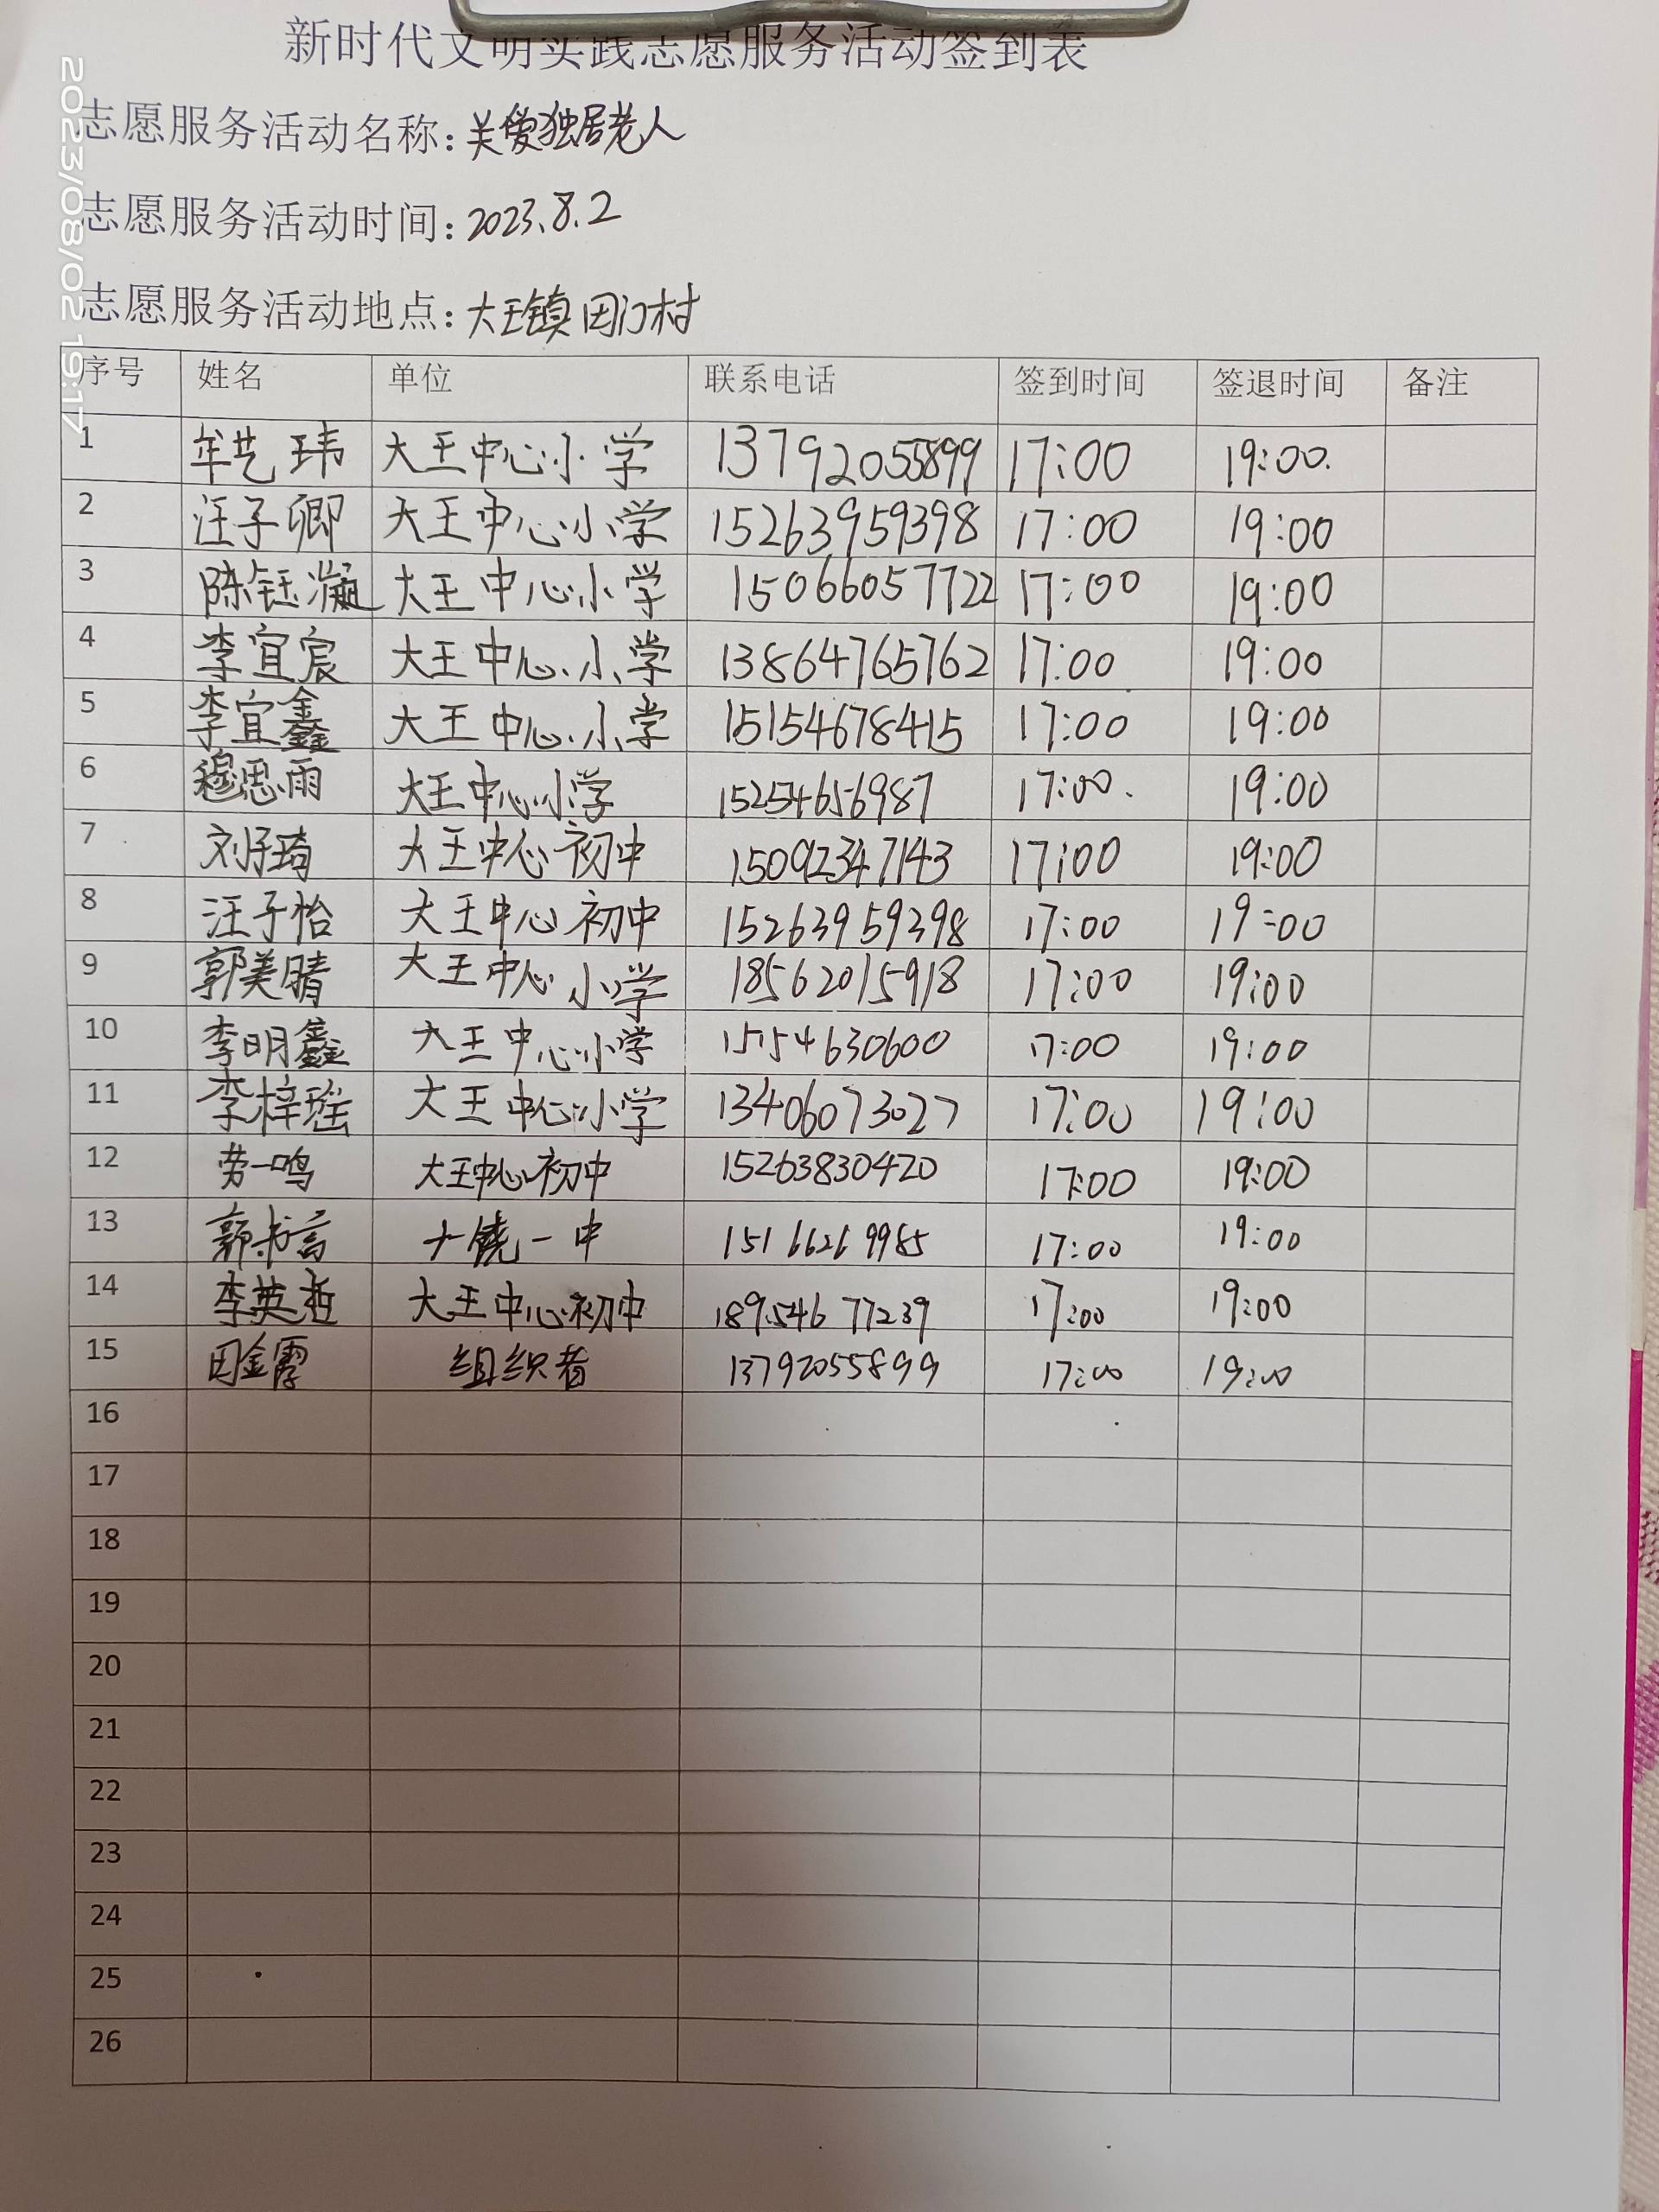 新时代文明实践志愿服务活动签到表
志愿服务活动名称：关爱独居老人
志愿服务活动时间：2023.8.2
志愿服务活动地点：大王镇田门村
2023/08/02 19:17
序号 姓名 单位 联系电话 签到时间 签退时间 备注
1 牟艺玮 大王中心小学 13792055899 17:00 19:00.
2 汪子卿 大王中心小学 15263959398 17:00 19:00
3 陈钰凝 大王中心小学 15066057722 17:00 19:00
4 李宜宸 大王中心小学 13864765762 17:00 19:00
5 李宜鑫 大王中心小学 15154678415 17:00 19:00
6 穆思雨 大王中心小学 15254656987 17:00. 19:00
7 刘子琦 大王中心初中 15092347143 17:00 19:00
8 汪子怡 大王中心初中 15263959398 17:00 19:00
9 郭美晴 大王中心小学 18562015918 17:00 19:00
10 李明鑫 大王中心小学 15154630600 17:00 19:00
11 李梓瑶 大王中心小学 13406073027 17:00 19:00
12 劳一鸣 大王中心初中 15263830420 17:00 19:00
13 郭书言 广饶一中 15166269985 17:00 19:00
14 李英哲 大王中心初中 18954677239 17:00 19:00
15 田金霞 组织者 13792055899 17:00 19:00
16
17
18
19
20
21
22
23
24
25
26